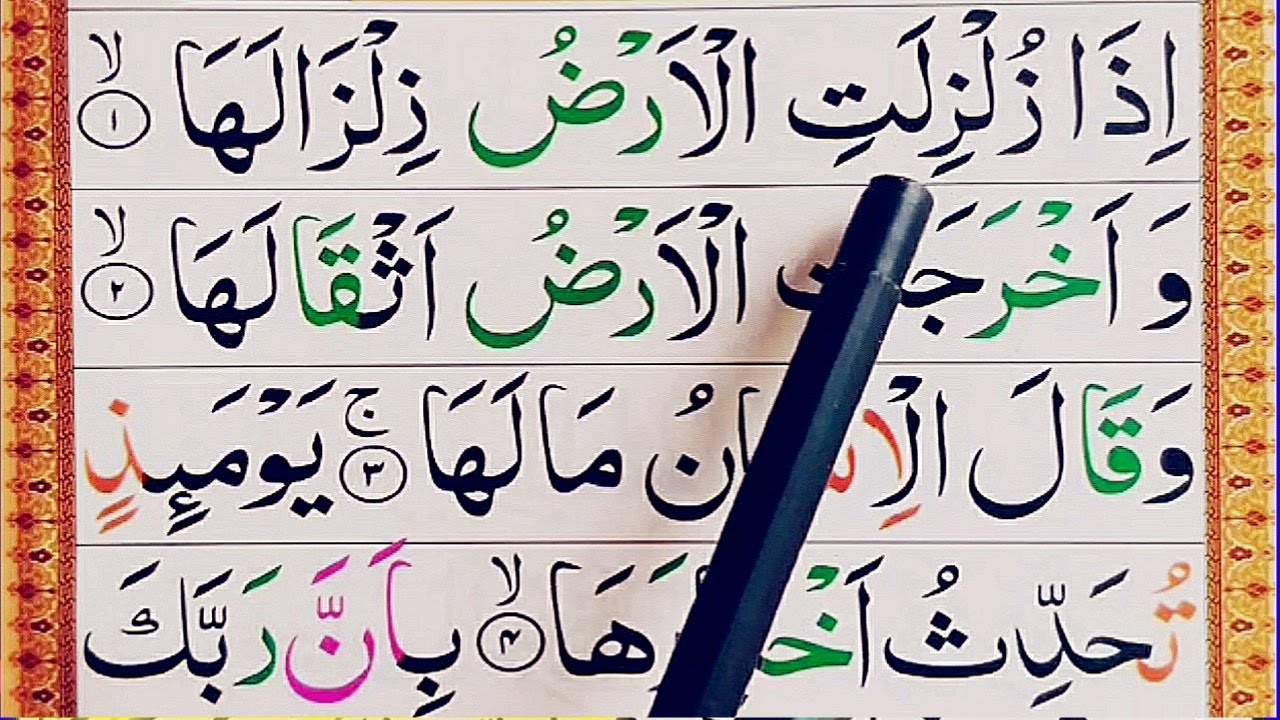 اِذَا زُلْزِلَتِ الْاَرْضُ زِلْزَالَهَا ۙ﴿۱﴾
وَ اَخْرَجَتِ الْاَرْضُ اَثْقَالَهَا ۙ﴿۲﴾
وَ قَالَ الْاِنْسَانُ مَا لَهَا ۚ﴿۳﴾ يَوْمَئِذٍ
تُحَدِّثُ اَخْبَارَهَا ۙ﴿۴﴾ بِاَنَّ رَبَّكَ